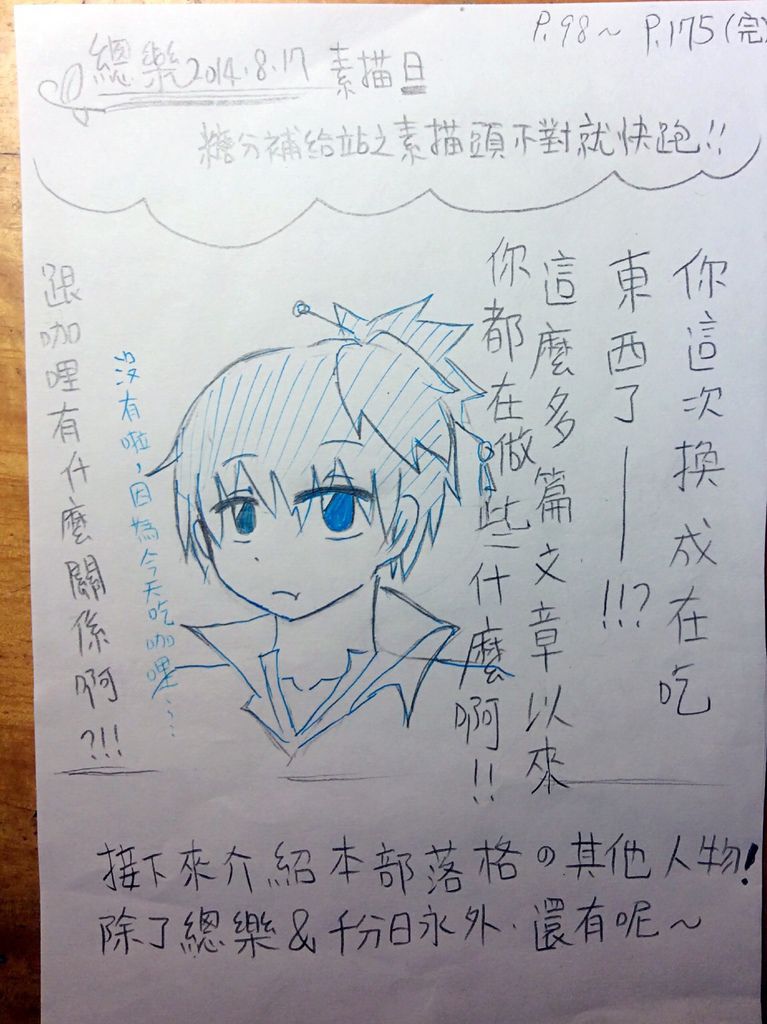 P.98～P.175(完)
總樂2014.8.17 素描日
糖分補給站之素描頭不對就快跑!!
你這次換成在吃
東西了——!!?
這麼多篇文章以來
你都在做些什麼啊!!
沒有啦，因為今天吃咖哩……
跟咖哩有什麼關係啊?!!!
接下來介紹本部落格の其他人物!
除了總樂&千分日永外.還有呢～